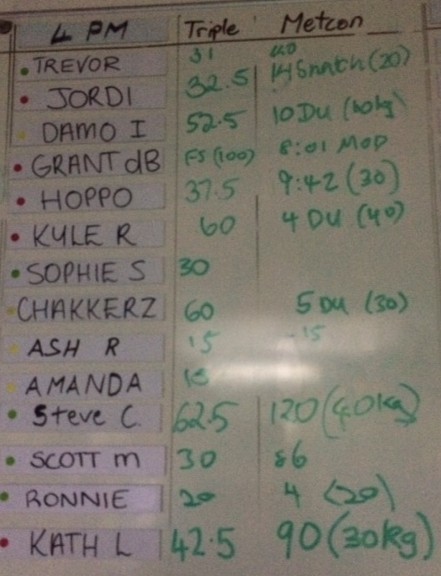 4 PM Triple Metcon
TREVOR 31
JORDI 32.5 14 Snatch (20)
DAMO I 52.5 10 DU (40kg)
GRANT dB FS (100) 8:01 MOD
HOPPO 37.5 9:42 (30)
KYLE R 60 4 DU (40)
SOPHIE S 30
CHAKKERZ 60 5 DU (30)
ASH R 15 15
AMANDA
Steve C. 62.5 120 (40kg)
SCOTT m 30 86
RONNIE 20 4 (20)
KATH L 42.5 90 (30kg)